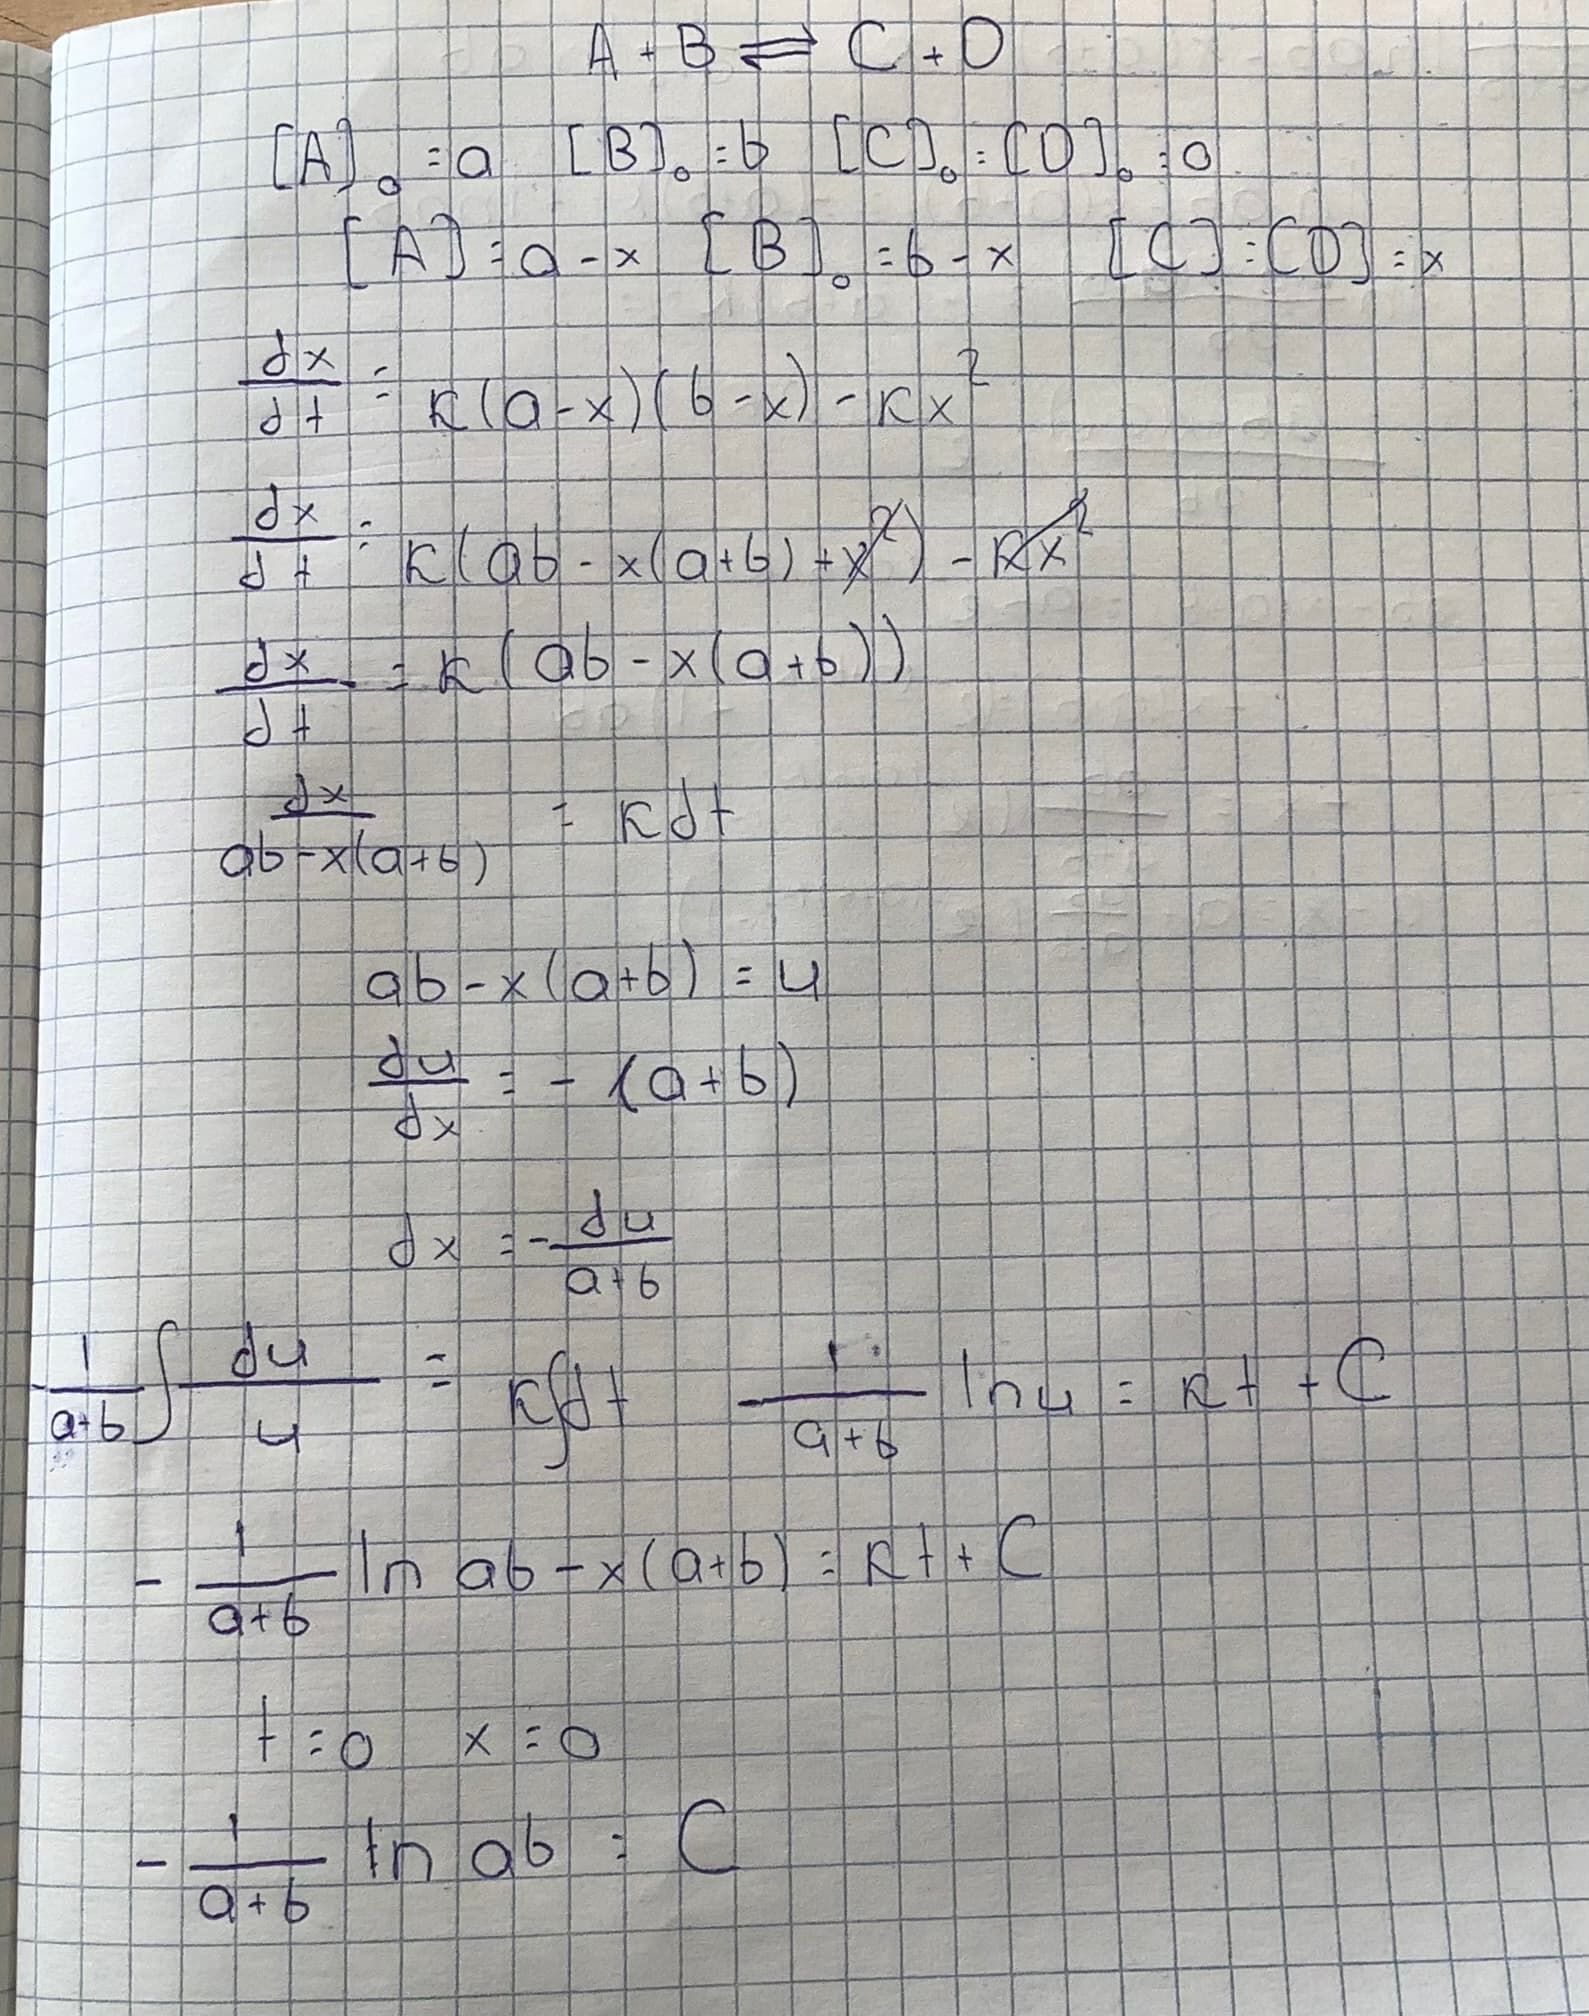 A + B ⇌ C + D
[A]₀ = a [B]₀ = b [C]₀ = [D]₀ = 0
[A] = a - x [B]₀ = b - x [C] = [D] = x
dx/dt = k(a-x)(b-x) - kx²
dx/dt = k(ab - x(a+b) + x²) - kx²
dx/dt = k(ab - x(a+b))
dx/(ab-x(a+b)) = kdt
ab - x(a+b) = u
du/dx = - (a+b)
dx = - du/(a+b)
-1/(a+b) ∫ du/u = k∫dt -1/(a+b) ln u = kt + C
- 1/(a+b) ln ab - x(a+b) = kt + C
t = 0 x = 0
- 1/(a+b) ln ab = C